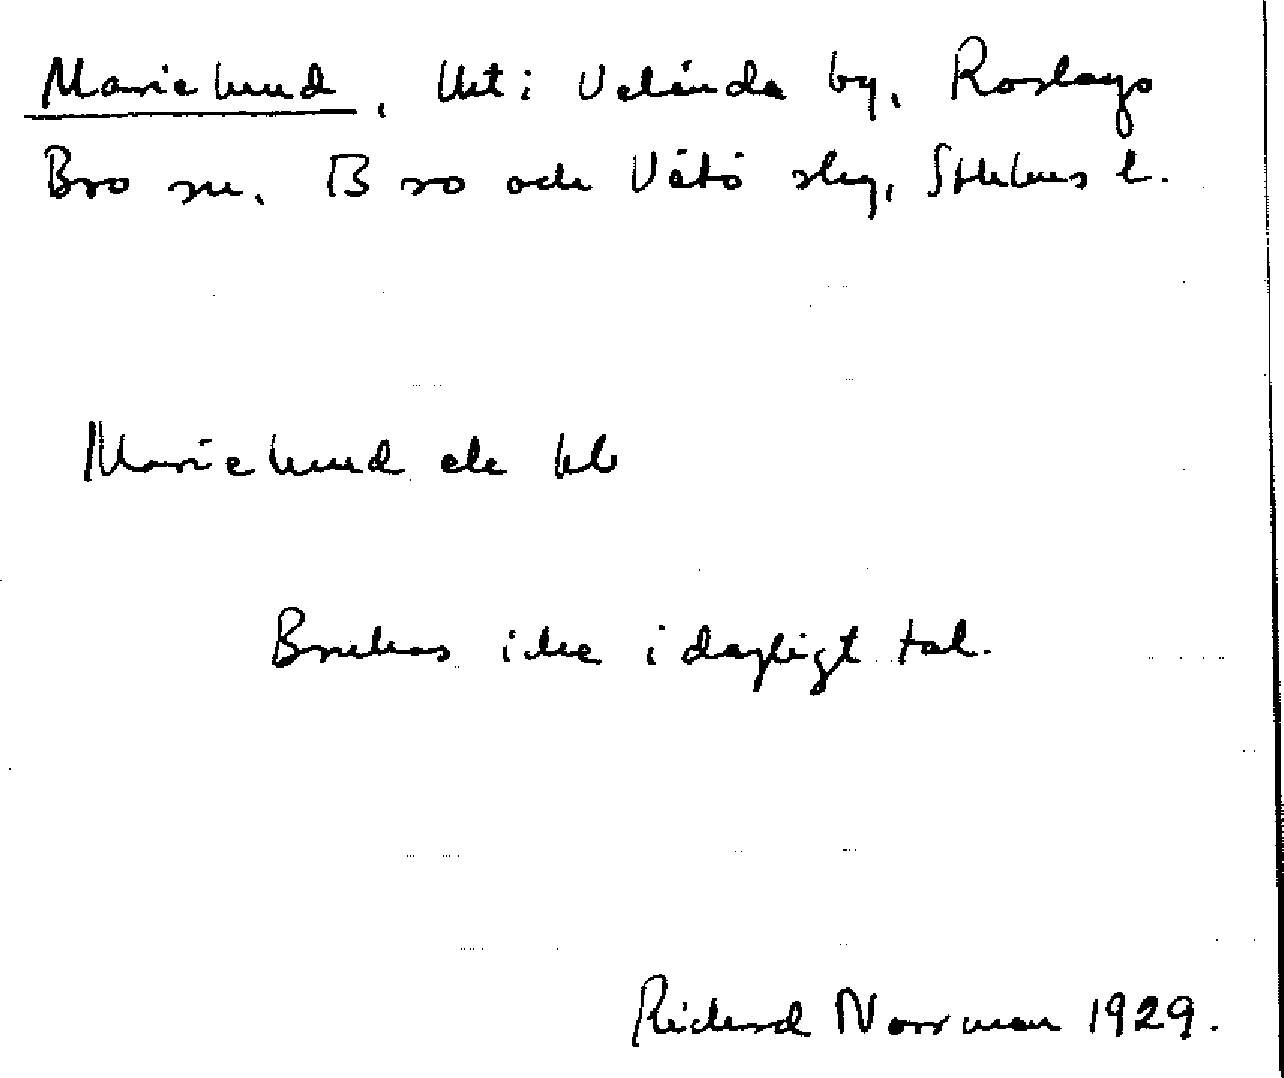 Marielund, Utt i Utlunda by, Roslags
Bro sn. Bro och Vätö skg, Sthlms l.
Marielund ek kb
Brukas icke i dagligt tal.
Richard Norrman 1929.